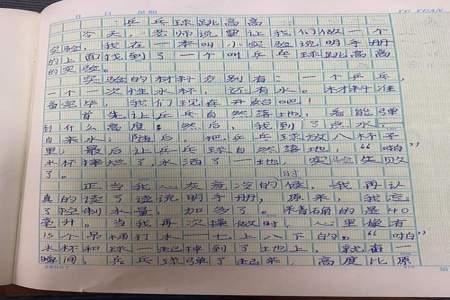 乒乓球跳高高
今天,老师说要让我们做一个
实验,我在一本叫小实验说明手册
的上面找到了一个叫乒乓球跳高高
的实验。
实验的材料分别有:一个乒乓,
一个一次性水杯,还有水。材料准
备完毕,我们现在开始吧!
首先让乒乓自然落地,看能弹
到什么高度;然后,我到了点水
自来水;随后,把乒乓球放入杯子
里,最后让乒乓球自然落地。“啪”
水杯摔烂了,水洒了一地,实验失败
了。
正当我心灰意冷的时候,我再认
真的读了读说明手册,原来,我忘
了控制水量,加多了。的是40
毫升。当我再次操做时,心里像有
15个吊桶打水——七上八下的。“啪”
水杯和球一起掉到了地上。就在一
瞬间,乒乓球弹了起来,高度比原